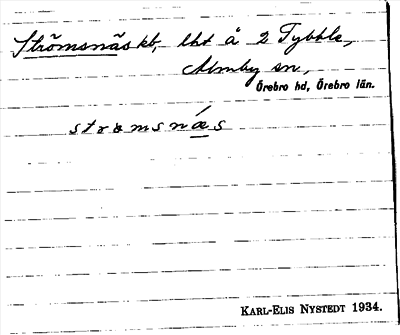 Strömsnäs kt, lht å 2 Tybble,
Almby sn,
Örebro hd, Örebro län.
strømsnǽs
KARL-ELIS NYSTEDT 1934.